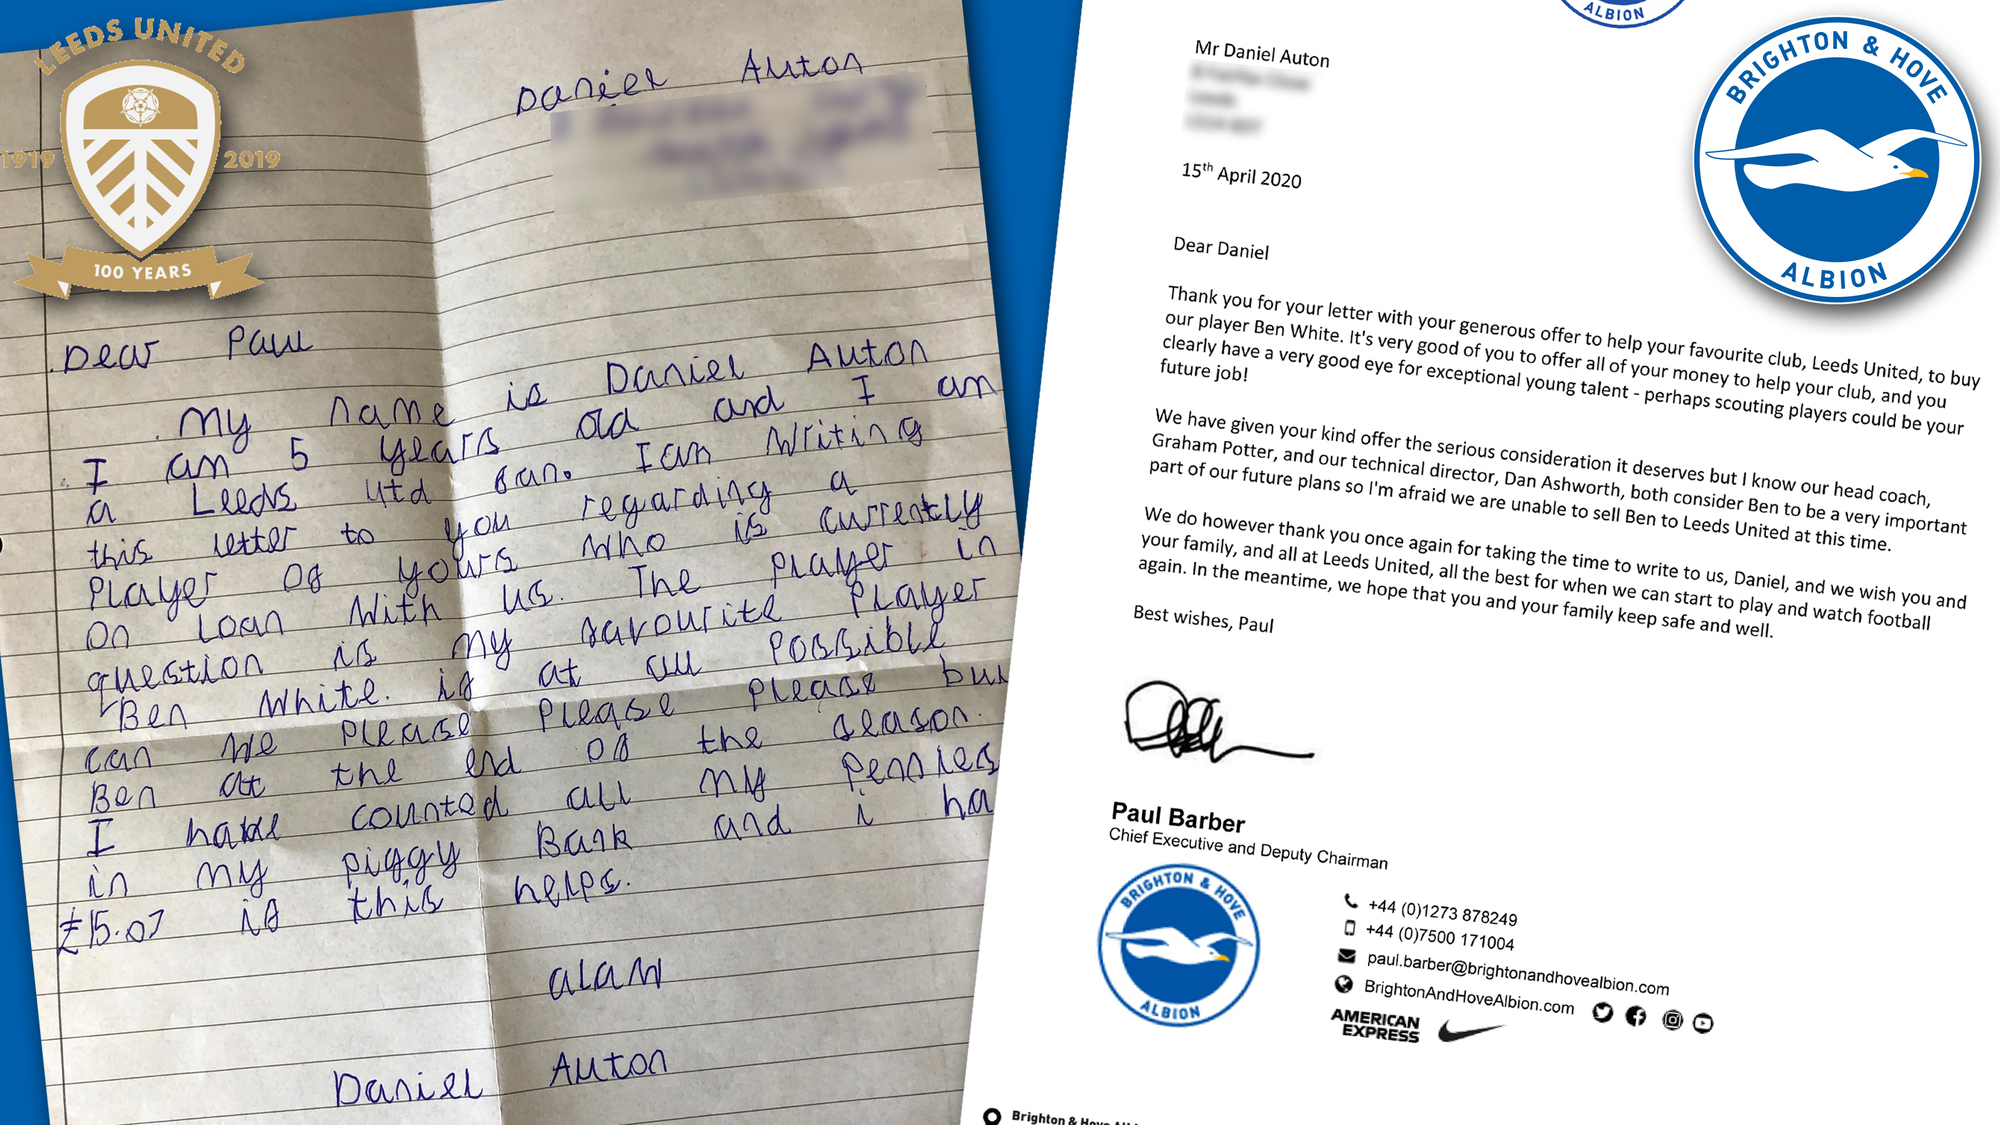 LEEDS UNITED
1919 2019
100 YEARS
Daniel Auton
Dear Paul
My name is Daniel Auton
I am 5 years old and I am
a Leeds utd fan. I am writing
this letter to you regarding a
Player of yours who is currently
on Loan With us. The Player in
question is my favourite Player
Ben White. if at all Possible
can we Please Please Please buy
Ben at the end of the season.
I have counted all my Pennies
in my piggy Bank and i ha
£15.07 if this helps.
alaw
Daniel Auton
ALBION
BRIGHTON & HOVE
ALBION
Mr Daniel Auton
15th April 2020
Dear Daniel
Thank you for your letter with your generous offer to help your favourite club, Leeds United, to buy
our player Ben White. It's very good of you to offer all of your money to help your club, and you
clearly have a very good eye for exceptional young talent - perhaps scouting players could be your
future job!
We have given your kind offer the serious consideration it deserves but I know our head coach,
Graham Potter, and our technical director, Dan Ashworth, both consider Ben to be a very important
part of our future plans so I'm afraid we are unable to sell Ben to Leeds United at this time.
We do however thank you once again for taking the time to write to us, Daniel, and we wish you and
your family, and all at Leeds United, all the best for when we can start to play and watch football
again. In the meantime, we hope that you and your family keep safe and well.
Best wishes, Paul
Paul Barber
Chief Executive and Deputy Chairman
BRIGHTON & HOVE
ALBION
+44 (0)1273 878249
+44 (0)7500 171004
paul.barber@brightonandhovealbion.com
BrightonAndHoveAlbion.com
AMERICAN
EXPRESS
Brighton & Hove Alb